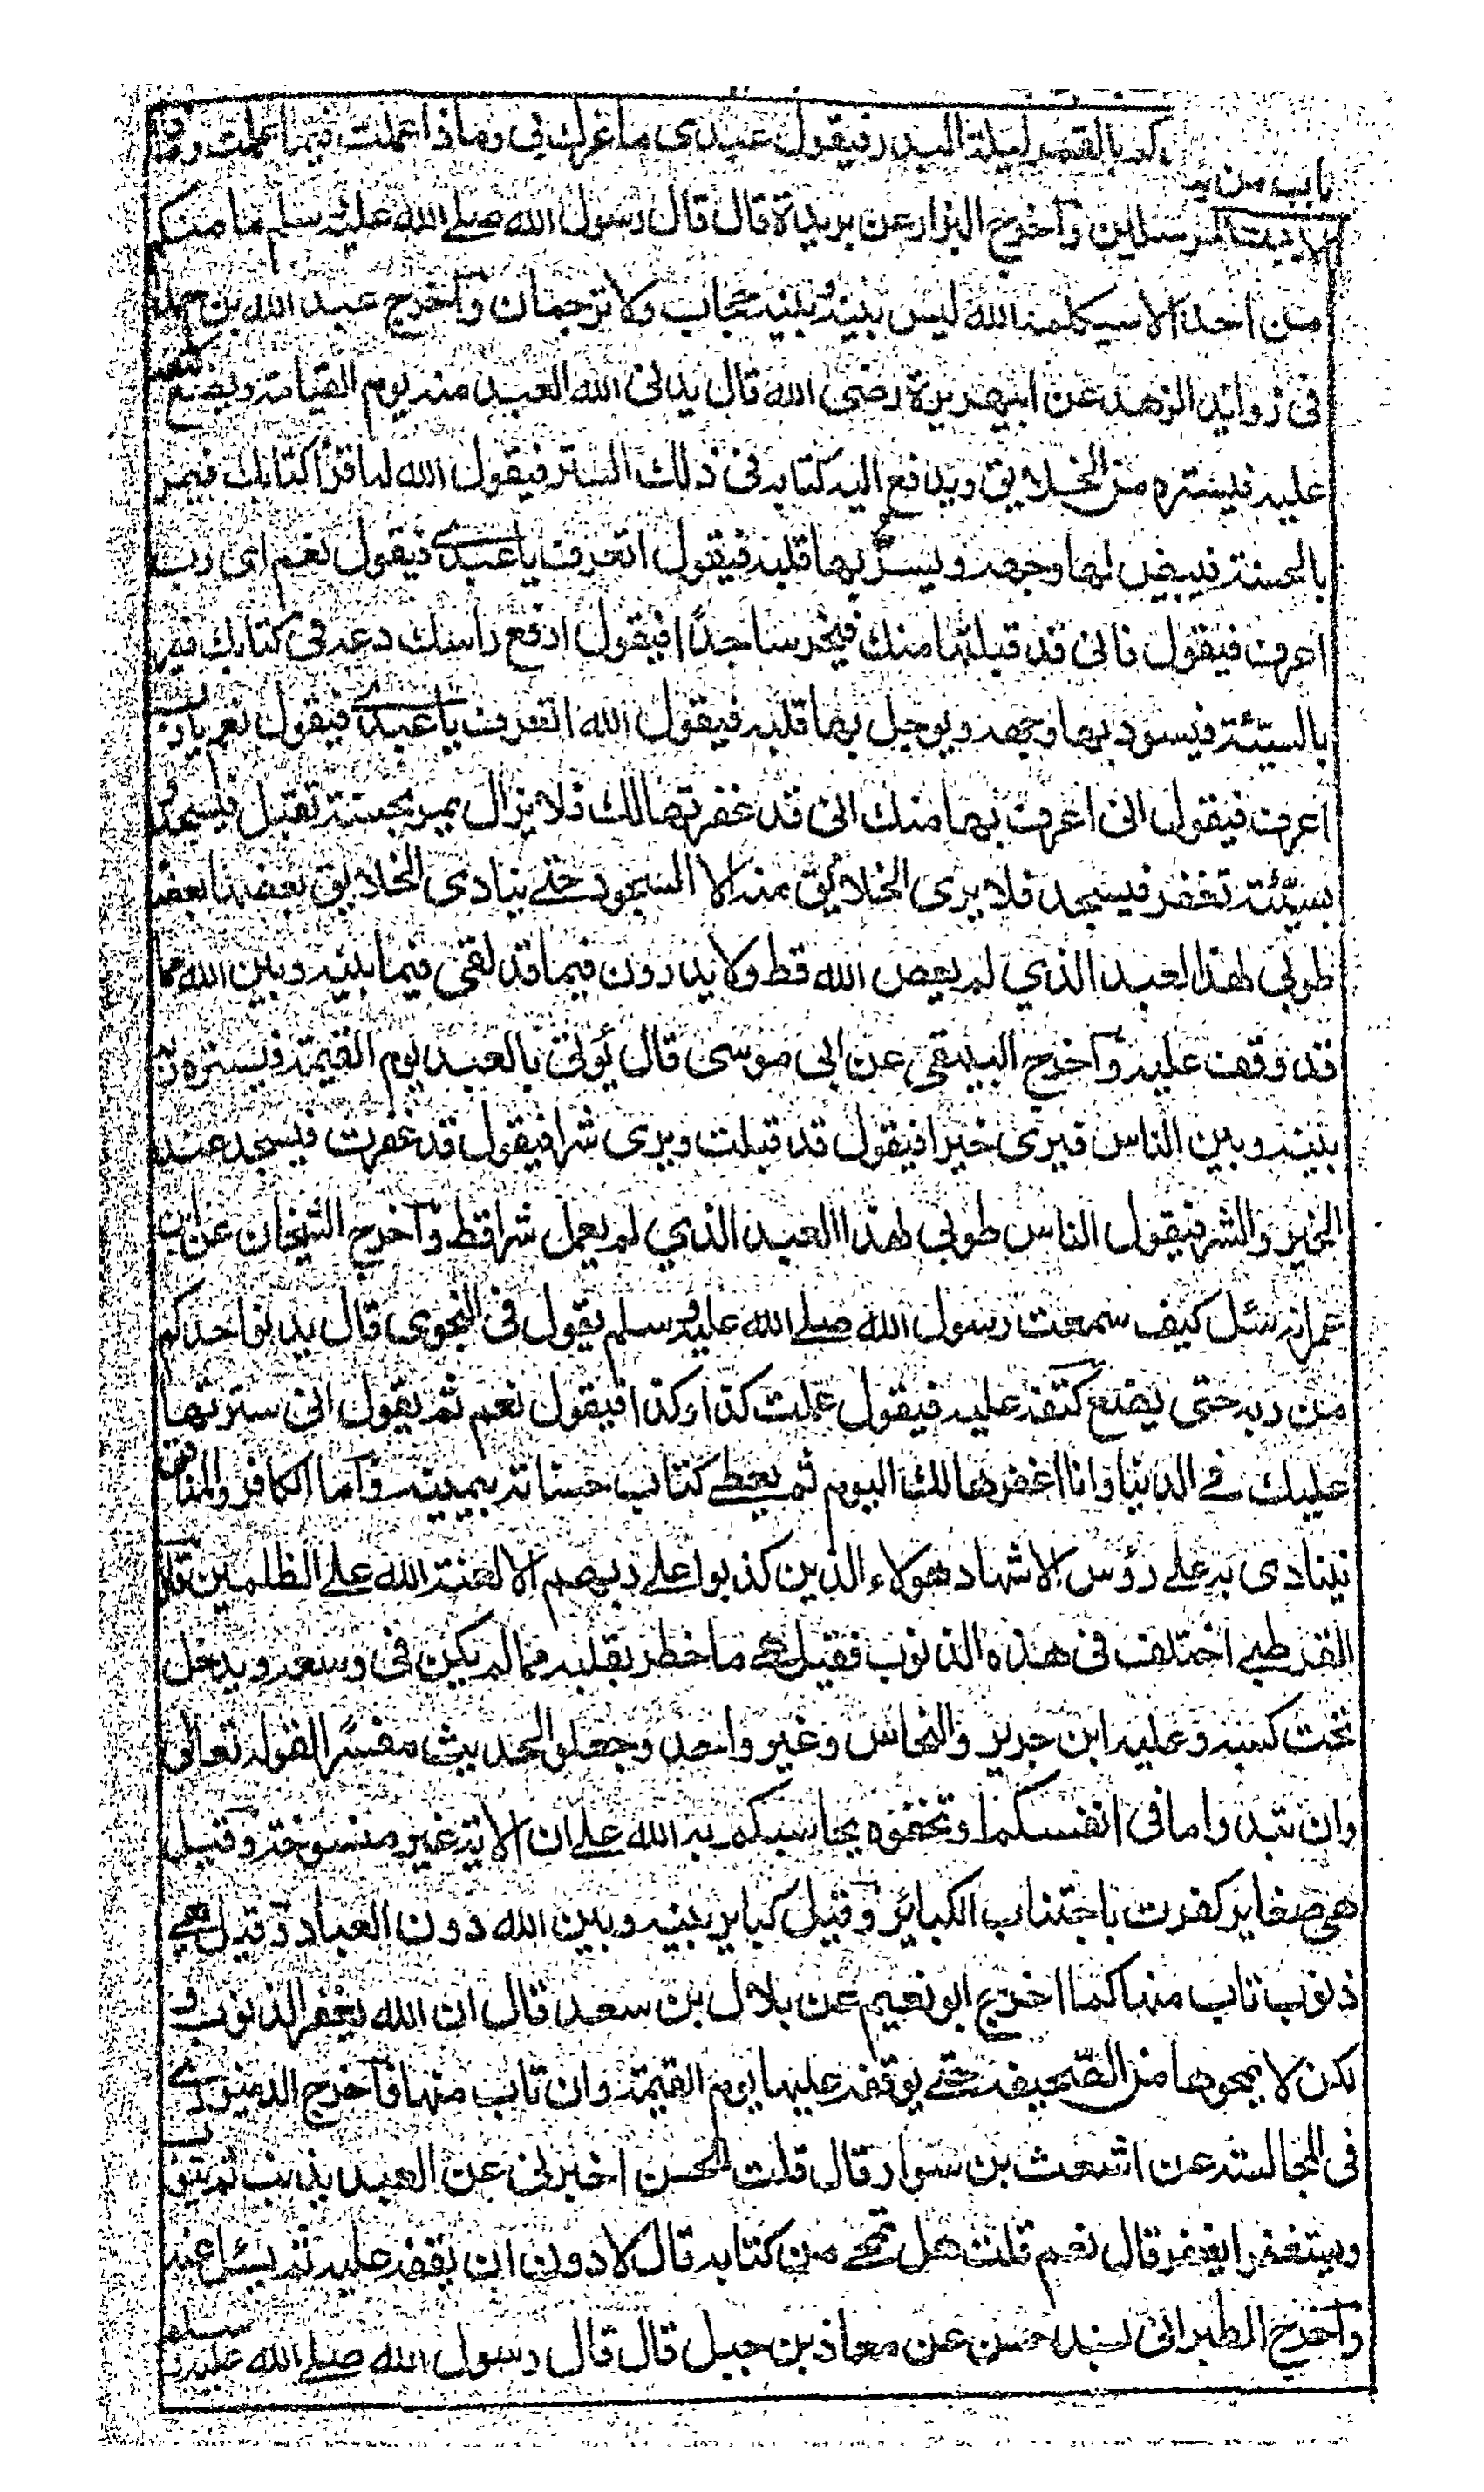 كم بالقمر ليلة البدر فيقول عبدى ما غرك بى وماذا عملت فيما علمت
باب من
المرسلين وآخرج البزار عن بريدة قال قال رسول الله صلے الله عليه وسلم ما منكم
من احد الا سيكلمه الله ليس بينه وبينه حجاب ولا ترجمان وآخرج عبد الله بن حمد
فى زوائد الزهد عن ابيهريرة رضى الله قال يدنى الله العبد منه يوم القيامة ويضع كنفه
عليه فيستره من الخلايق ويدفع اليه كتابه فى ذلك الستر فيقول الله له اقرأ كتابك فيمر
بالحسنة فيبيض لها وجهه ويسر بها قلبه فيقول اتعرف يا عبدى فيقول نعم اى رب
اعرف فيقول فانى قد قبلتها منك فيخر ساجدًا فيقول ارفع راسك وعد فى كتابك فيمر
بالسيئة فيسود بها وجهه ويوجل بها قلبه فيقول الله اتعرف يا عبدى فيقول نعم يارب
اعرف فيقول انى اعرف بها منك انى قد غفرتها لك فلا يزال يمر بحسنة تقبل فيسجد و
بسيّئة تغفر فيسجد فلا يرى الخلائق منه الا السجود حتے ينادى الخلايق بعضها بعضا
طوبى لهذا لعبد الذي لم يعص الله قط ولا يدرون فيما قد لقى فيما بينه وبين الله مما
قد وقف عليه وآخرج البيهقى عن ابى موسى قال يؤتى بالعبد يوم القيمة فيستره ربه
بينه وبين الناس فيرى خيرا فيقول قد قبلت ويرى شرا فيقول قد غفرت فيسجد عند
الخير والشر فيقول الناس طوبى لهذا العبد الذي لم يعمل شرا قط وآخرج الشيخان عن ابن
عمر انه سئل كيف سمعت رسول الله صلے الله عليه وسلم يقول فى النجوى قال يدنو احدكم
من ربه حتى يضع كنفه عليه فيقول عملت كذا وكذا فيقول نعم ثم يقول انى سترتها
عليك فے الدنيا وانا اغفرها لك اليوم ثم يعطے كتاب حسناته بيمينه وآما الكافر والمنافق
فينادى به علے رؤس الاشهاد هولاء الذين كذبوا علے ربهم الا لعنة الله علے الظلمين قال
القرطبے اختلف فى هذه الذنوب فقيل هے ما خطر بقلبه مما لم يكن فى وسعه ويدخل
تحت كسبه وعليه ابن جرير والنحاس وغير واحد وجعلو الحديث مفسرًا لقوله تعالى
وان تبدوا ما فى انفسكم او تخفوه يحاسبكم به الله علے ان الاية غير منسوخة وقيل
هى صغاير كفرت باجتناب الكبائر وقيل كباير بينه وبين الله دون العباد وقيل هے
ذنوب تاب منها كما اخرج ابو نعيم عن بلال بن سعد قال ان الله يغفر الذنوب و
لكن لا يمحوها من الصّحيفة حتے يوقفه عليها يوم القيمة وان تاب منها وآخرج الدينورے
فى المجالسة عن اشعث بن سوار قال قلت للحسن اخبرنى عن العبد يذنب ثم يتوب
ويتغفر ايغفر قال نعم قلت هل تمحے من كتابه قال لا دون ان يقفه عليه ثم يسئل عنه
وآخرج الطبرانى بسند حسن عن معاذ بن جبل قال قال رسول الله صلے الله عليه وسلم